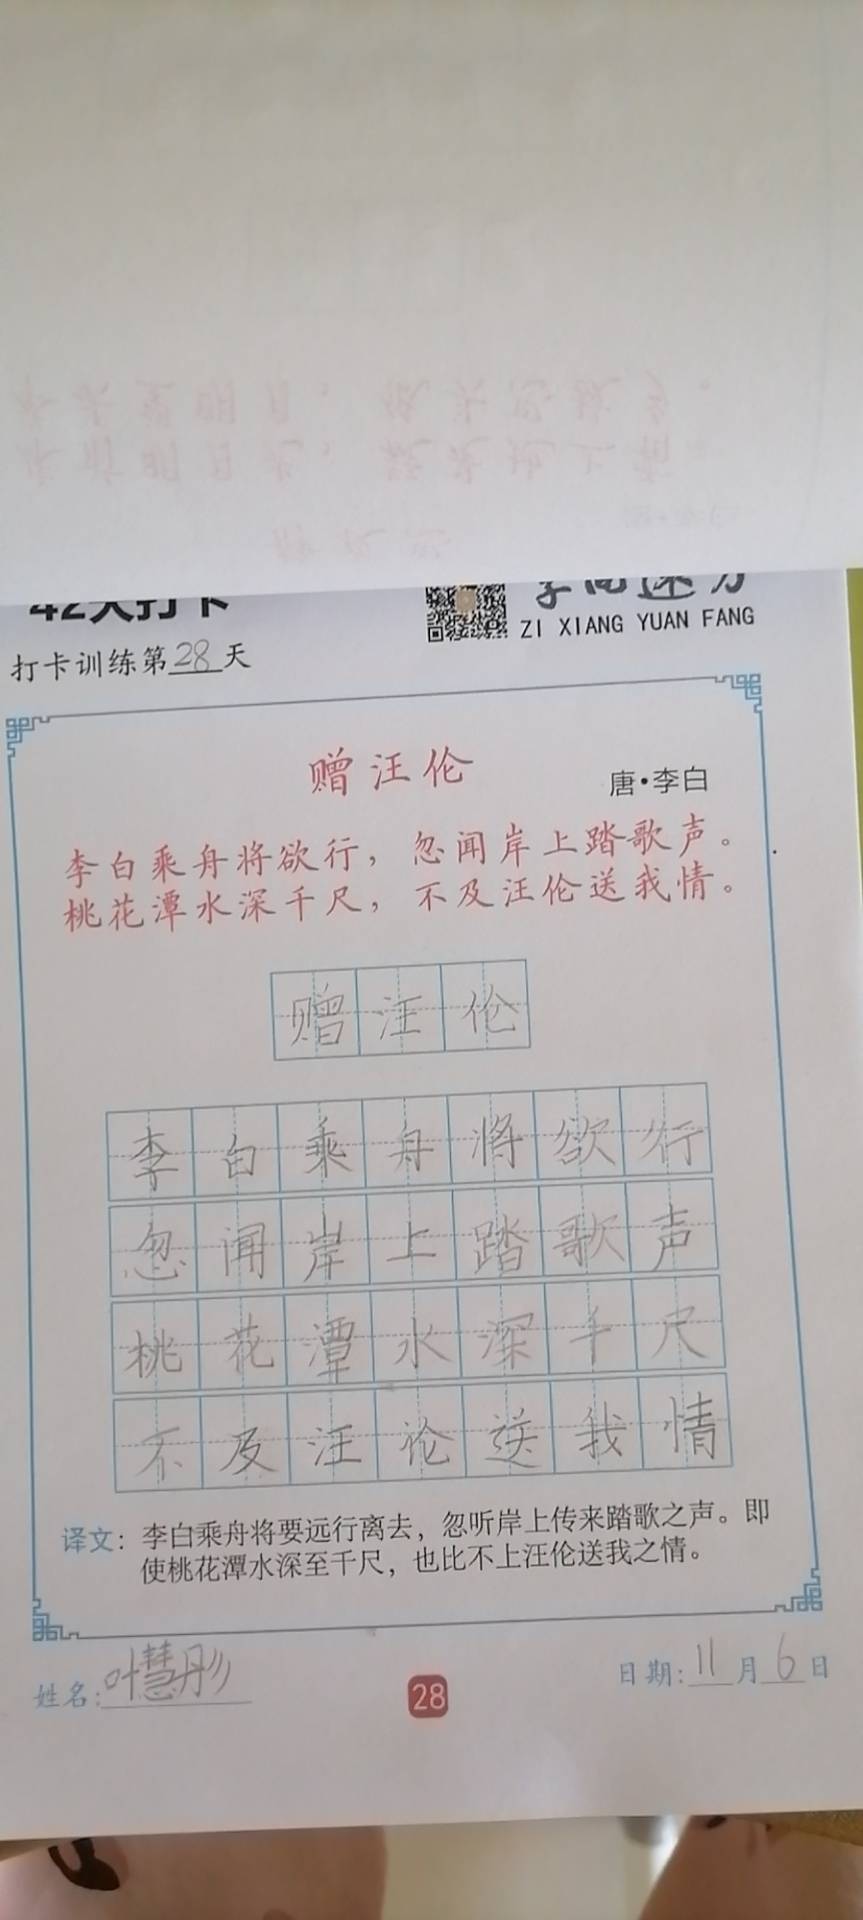 42天打卡
ZI XIANG YUAN FANG
打卡训练第28天
赠汪伦
唐·李白
李白乘舟将欲行，忽闻岸上踏歌声。
桃花潭水深千尺，不及汪伦送我情。
赠汪伦
李白乘舟将欲行
忽闻岸上踏歌声
桃花潭水深千尺
不及汪论送我情
译文：李白乘舟将要远行离去，忽听岸上传来踏歌之声。即
使桃花潭水深至千尺，也比不上汪伦送我之情。
姓名：叶慧彤
日期：11月6日
28